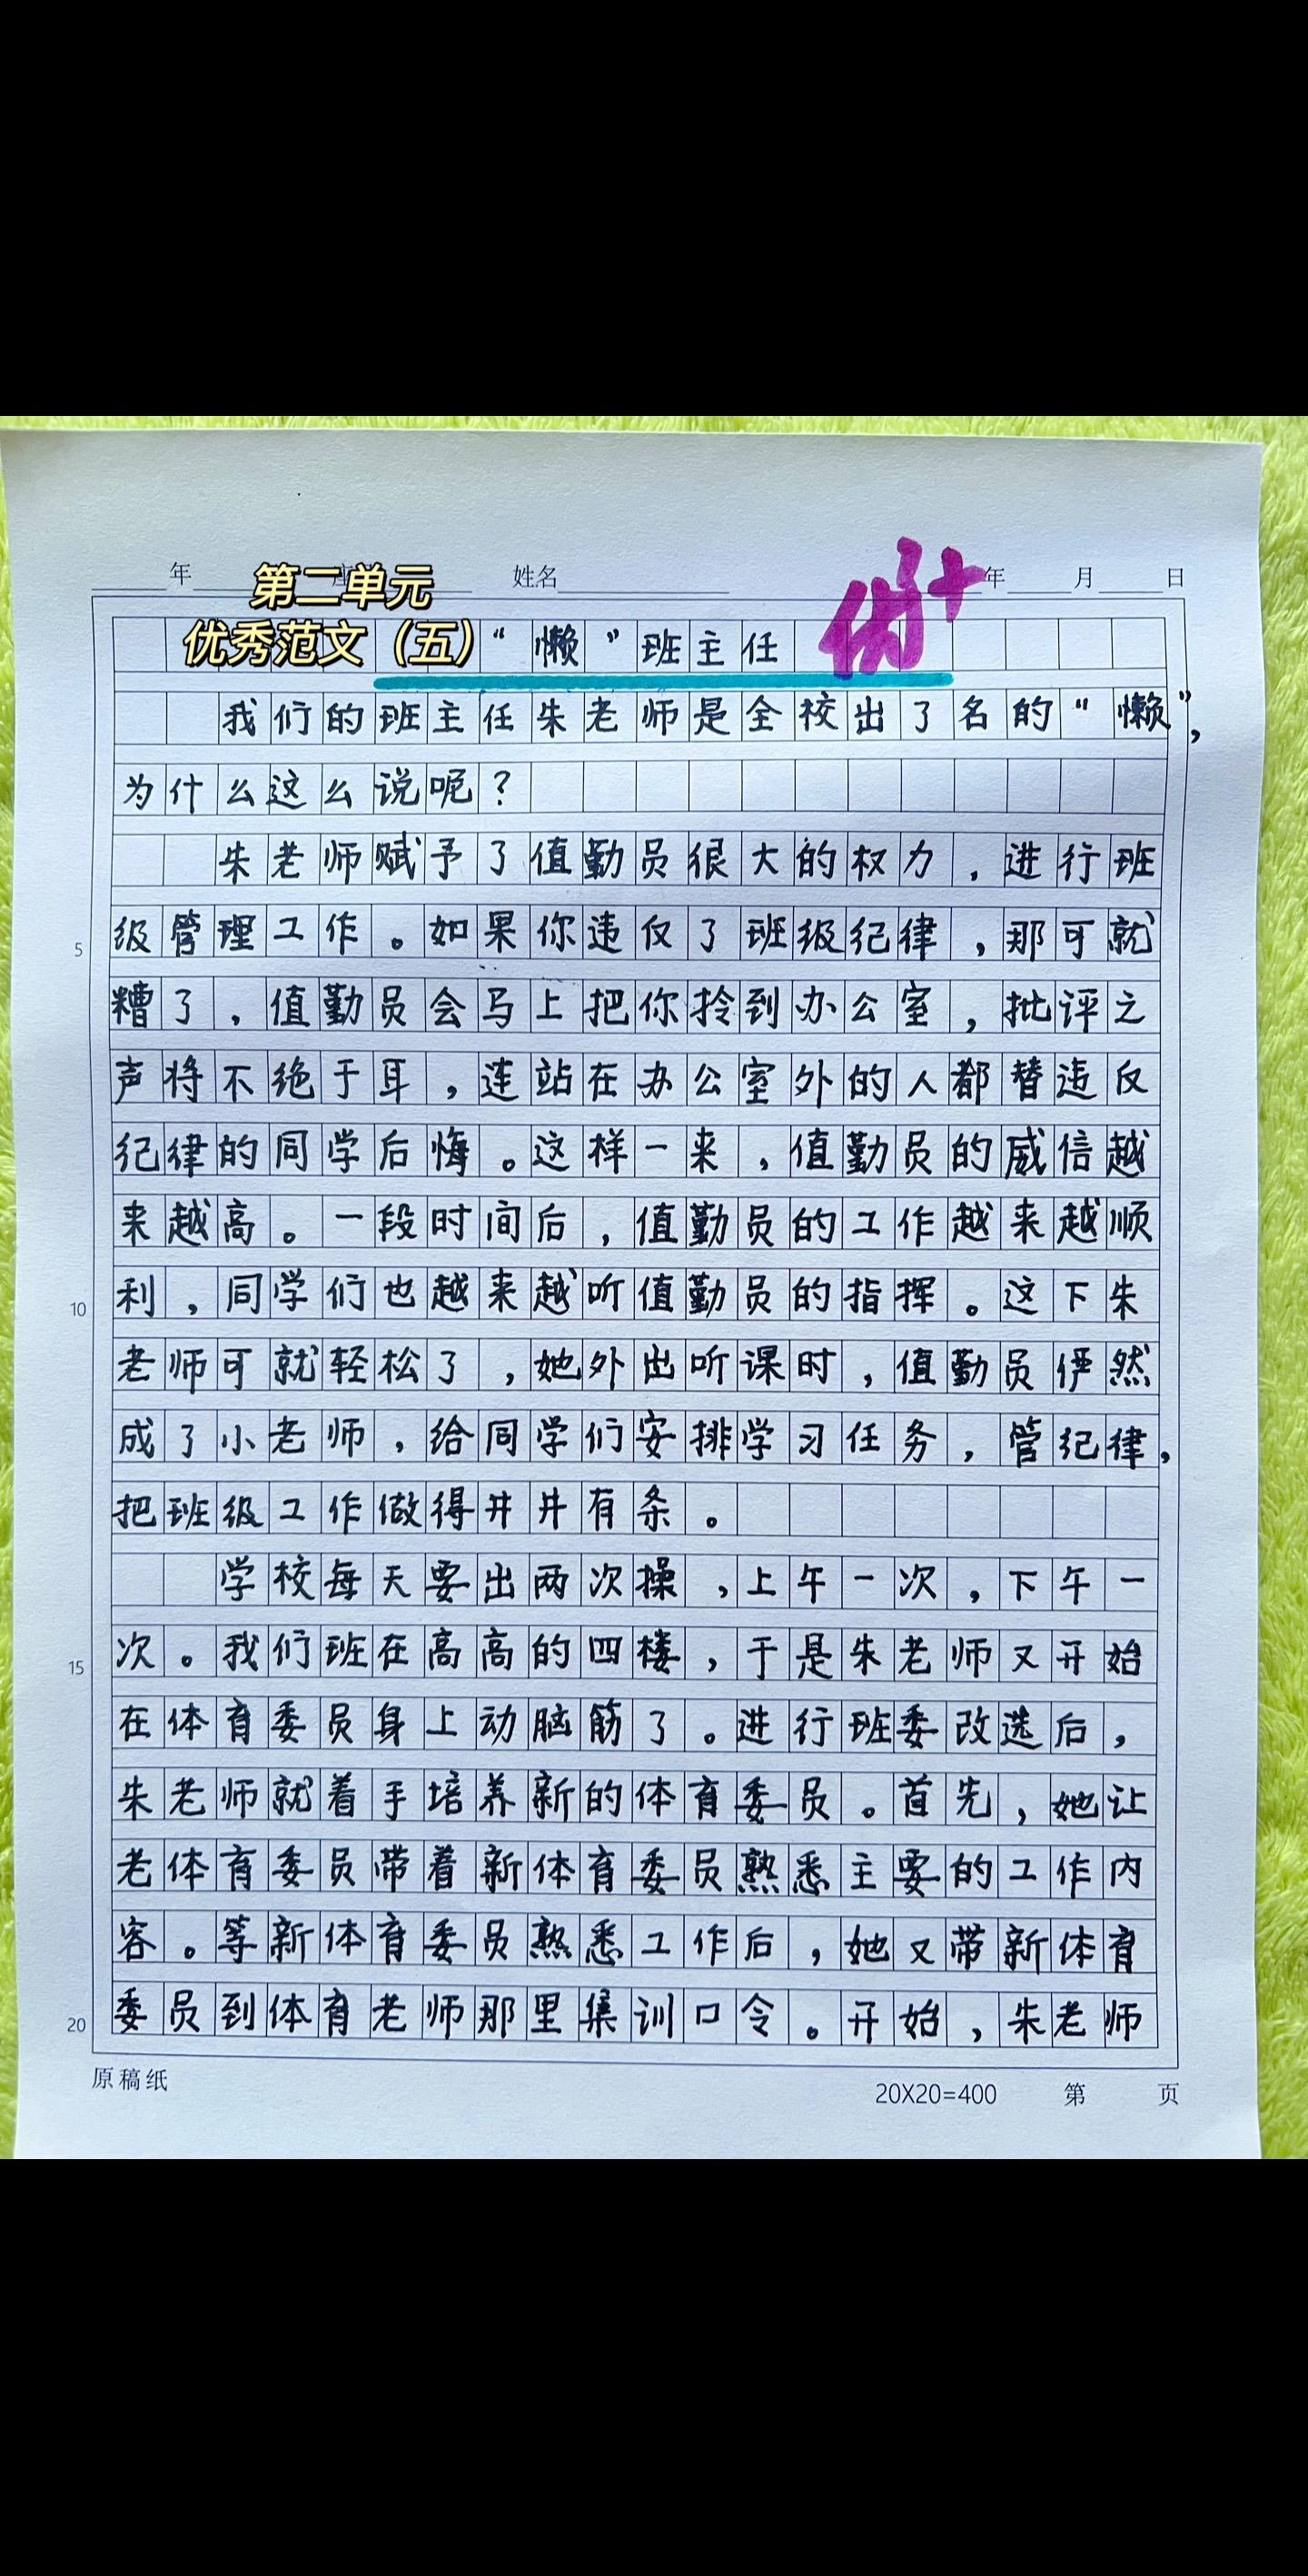 年 座 姓名 年 月 日
第二单元
优秀范文（五）
优+
“懒”班主任
我们的班主任朱老师是全校出了名的“懒”，
为什么这么说呢？
朱老师赋予了值勤员很大的权力，进行班
级管理工作。如果你违反了班级纪律，那可就
糟了，值勤员会马上把你拎到办公室，批评之
声将不绝于耳，连站在办公室外的人都替违反
纪律的同学后悔。这样一来，值勤员的威信越
来越高。一段时间后，值勤员的工作越来越顺
利，同学们也越来越听值勤员的指挥。这下朱
老师可就轻松了，她外出听课时，值勤员俨然
成了小老师，给同学们安排学习任务，管纪律，
把班级工作做得井井有条。
学校每天要出两次操，上午一次，下午一
次。我们班在高高的四楼，于是朱老师又开始
在体育委员身上动脑筋了。进行班委改选后，
朱老师就着手培养新的体育委员。首先，她让
老体育委员带着新体育委员熟悉主要的工作内
容。等新体育委员熟悉工作后，她又带新体育
委员到体育老师那里集训口令。开始，朱老师
5
10
15
20
原稿纸 20X20=400 第 页